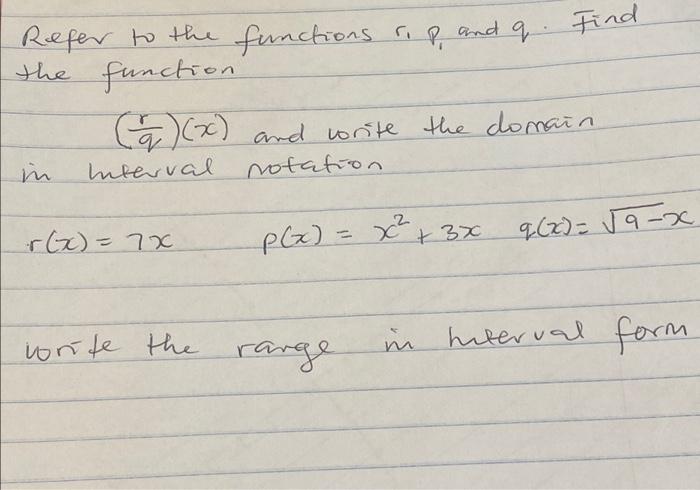 Refer to the functions r, p, and q. Find
the function
(r/q)(x) and write the domain
in interval notation
r(x) = 7x p(x) = x² + 3x q(x) = √9-x
write the range in interval form